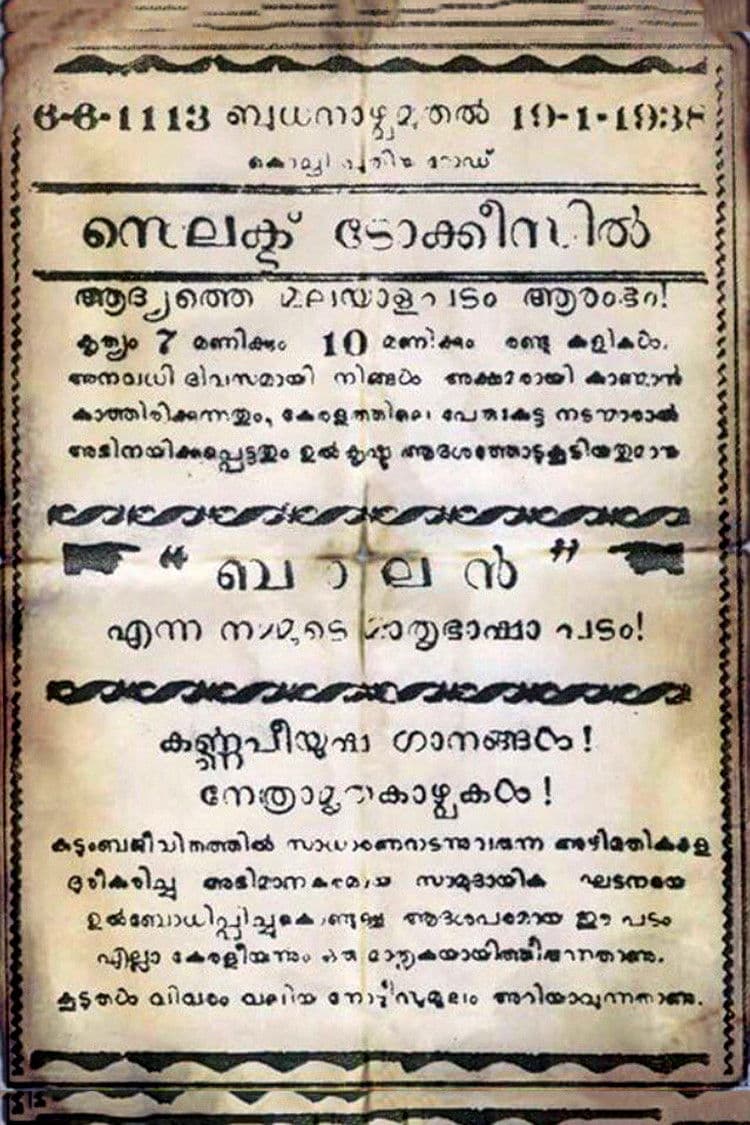 6-6-1113 ബുധനാഴ്ചമുതൽ 19-1-1938
കൊച്ചി പുതിയ റോഡ്
സെലക്ട് ടോക്കീസിൽ
ആദ്യത്തെ മലയാളപടം ആരംഭം!
കൃത്യം 7 മണിക്കും 10 മണിക്കും രണ്ടു കളികൾ.
അനവധി ദിവസമായി നിങ്ങൾ അക്ഷമരായി കാണ്മാൻ
കാത്തിരിക്കുന്നതും, കേരളത്തിലെ പേരുകേട്ട നടന്മാരാൽ
അഭിനയിക്കപ്പെട്ടതും ഉൽകൃഷ്ട ആദർശത്തോടുകൂടിയതുമായ
“ബാലൻ”
എന്ന നമ്മുടെ മാതൃഭാഷാ പടം!
കർണ്ണപീയൂഷ ഗാനങ്ങൾ!
നേത്രാമൃതകാഴ്ചകൾ!
കുടുംബജീവിതത്തിൽ സാധാരണനടന്നുവരുന്ന അഴിമതികളെ
ദൂരീകരിച്ചു അഭിമാനകരമായ സാമുദായിക ഘടനയെ
ഉൽബോധിപ്പിച്ചുകൊണ്ടുള്ള ആദർശപരമായ ഈ പടം
എല്ലാ കേരളീയനും ഒരു മാതൃകയായിത്തീരുന്നതാണു.
കൂടുതൽ വിവരം വലിയ നോട്ടീസുമൂലം അറിയാവുന്നതാണു.